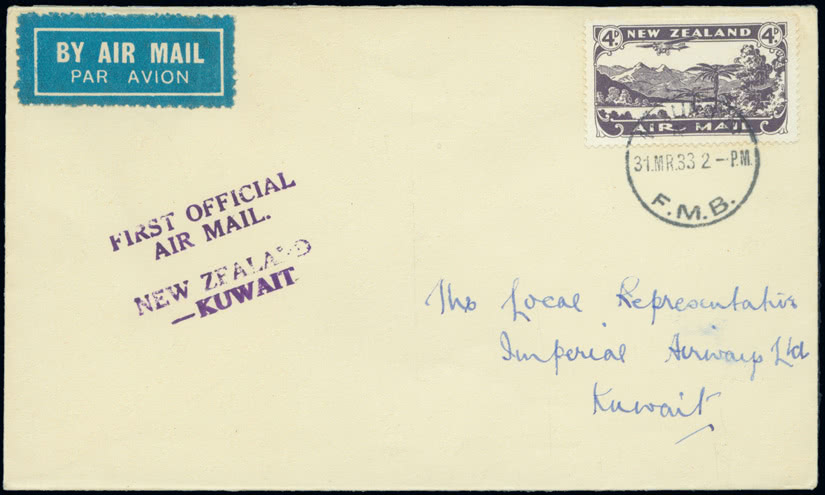 BY AIR MAIL
PAR AVION
4D NEW ZEALAND 4D
AIR MAIL
31.MR.33 2-PM.
F.M.B.
FIRST OFFICIAL
AIR MAIL.
NEW ZEALAND
—KUWAIT
The Local Representative
Imperial Airways Ltd
Kuwait